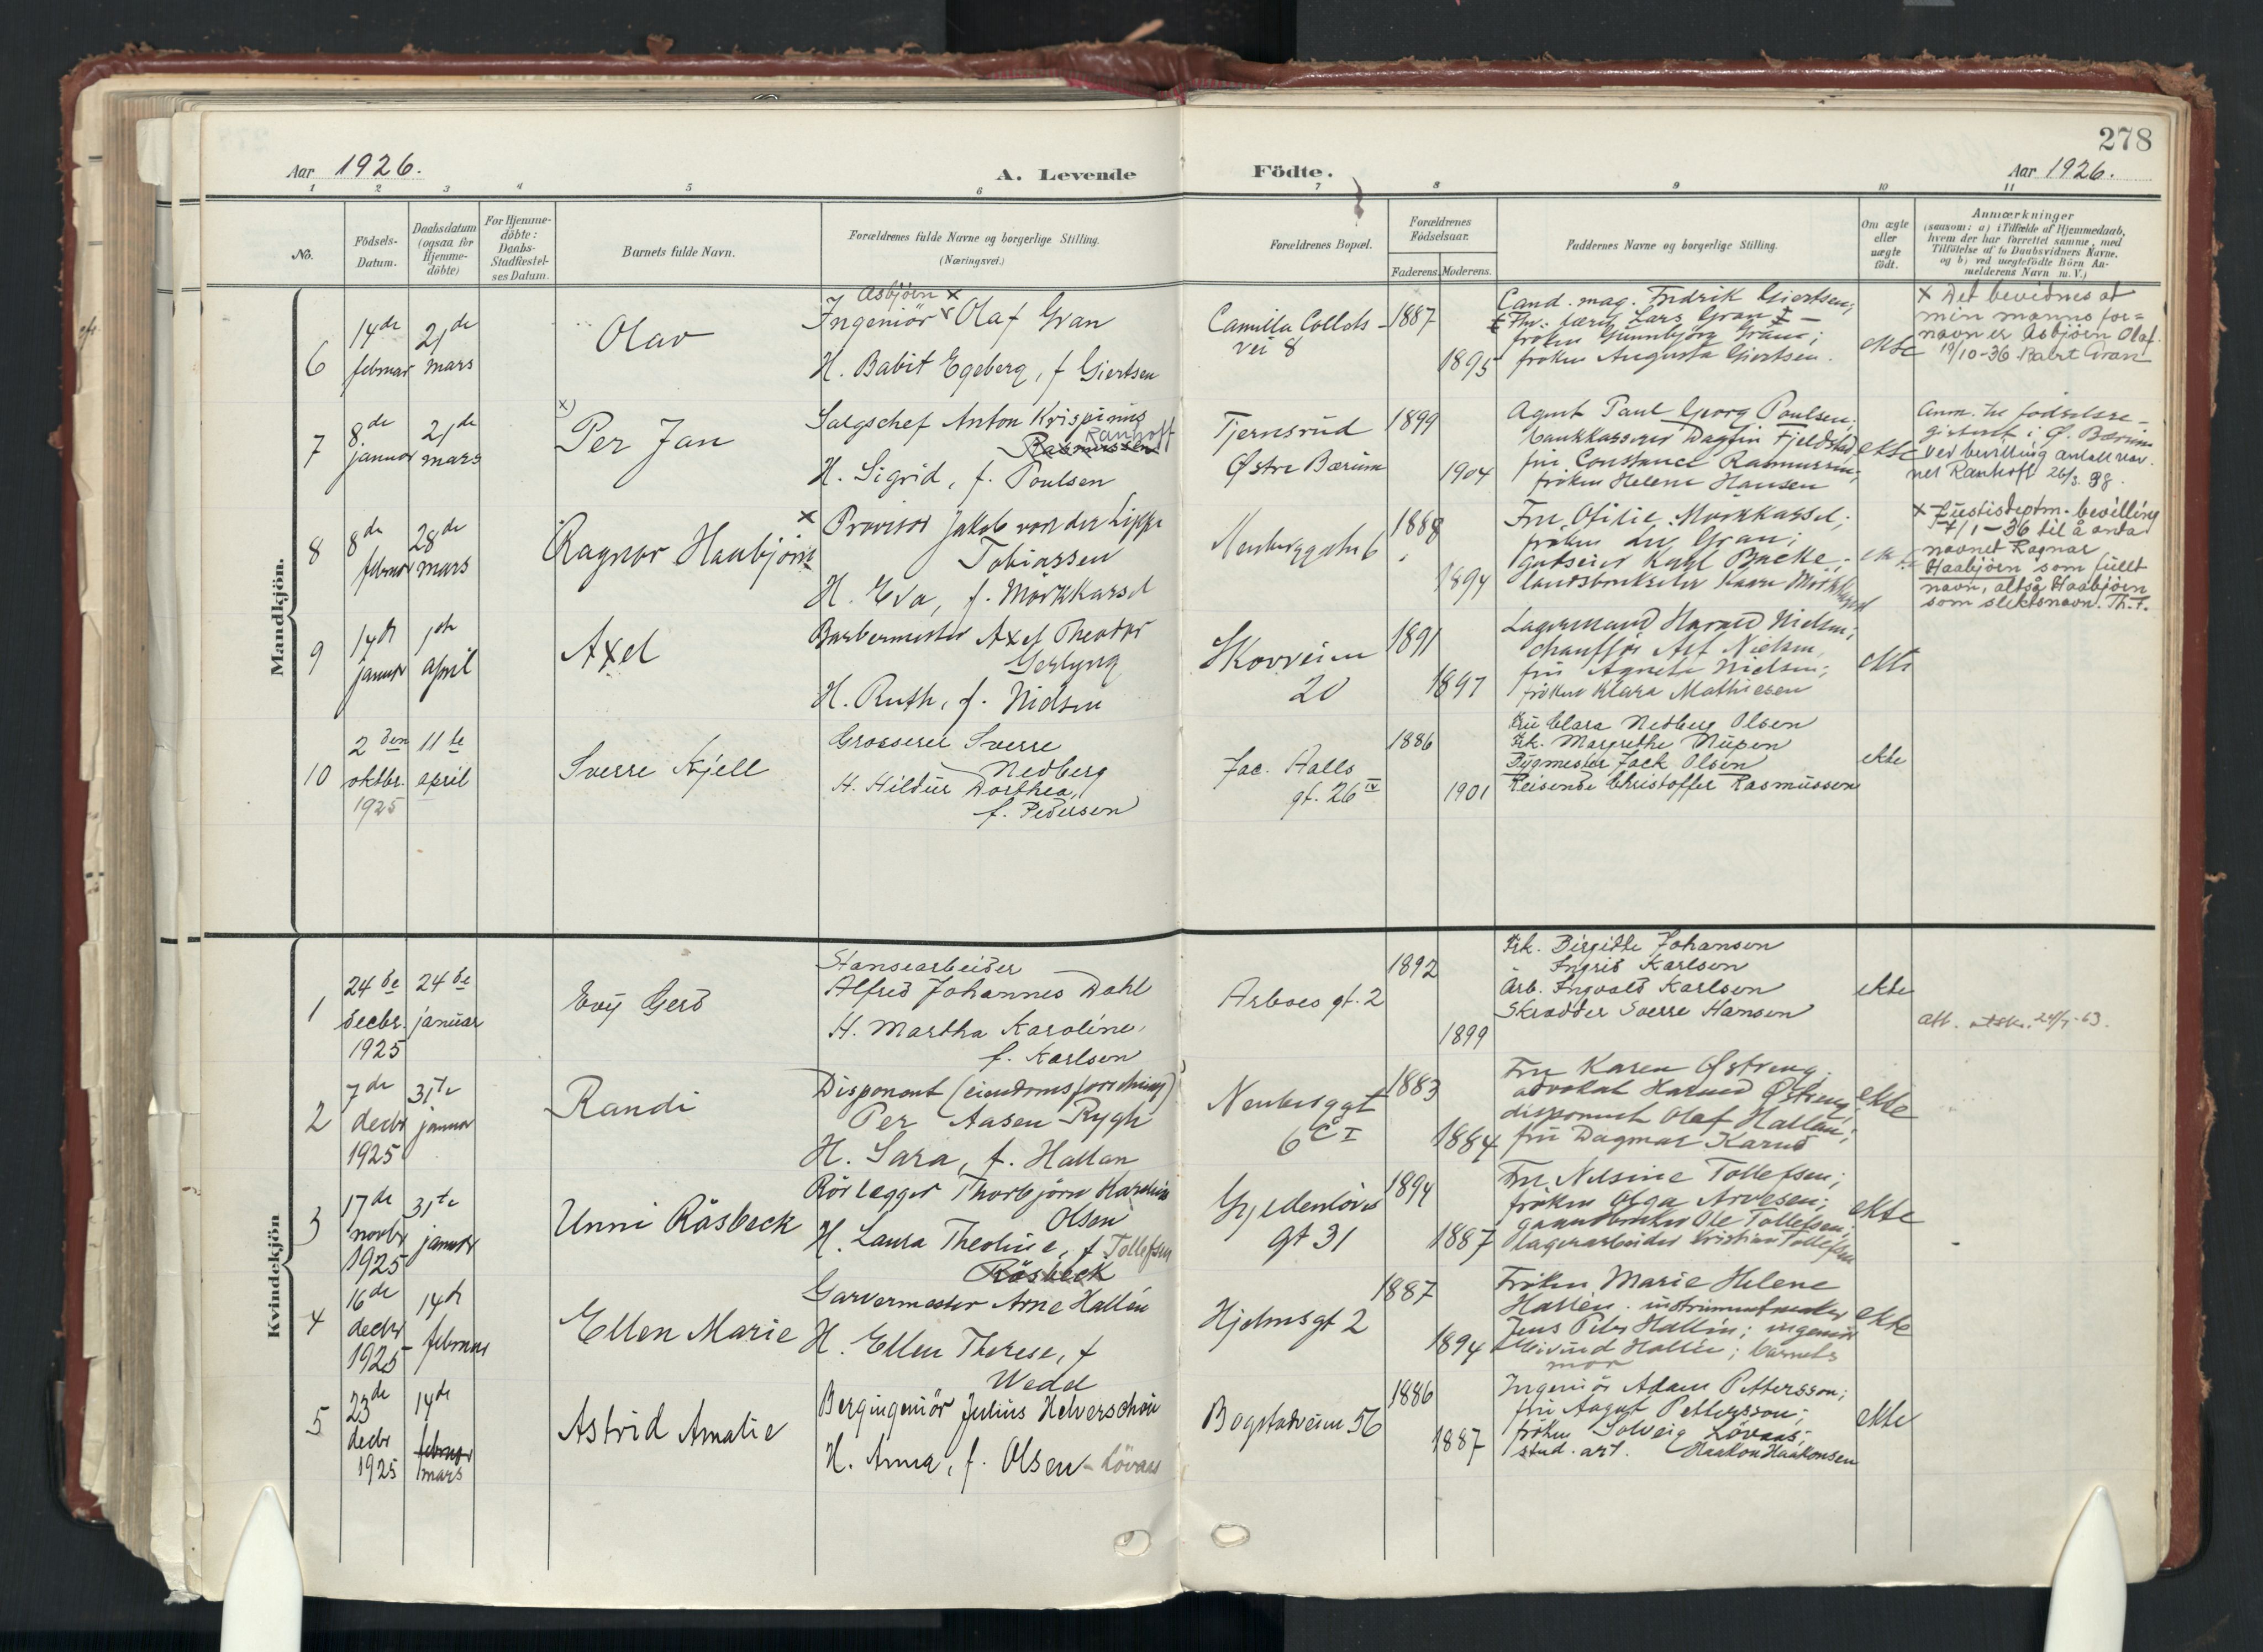 278
Aar 1926.
A. Levende
Födte.
Aar 1926.
1 2 3 4 5 6 7 8 9 10 11
No.
Födsels-
Datum.
Daabsdatum
(ogsaa for
Hjemme-
döbte)
For Hjemme-
döbte:
Daabs-
Stadfæstel-
ses Datum.
Barnets fulde Navn.
Forældrenes fulde Navne og borgerlige Stilling.
(Næringsvei.)
Forældrenes Bopæl.
Forældrenes
Födselsaar.
Faderens. Moderens.
Faddernes Navne og borgerlige Stilling.
Om ægte
eller
uægte
födt.
Anmærkninger
(saasom: a) i Tilfælde af Hjemmedaab,
hvem der har forrettet samme, med
Tilföielse af to Daabsvidners Navne.
og b) ved uægtefödte Börn An-
melderens Navn m. V.)
Mandkjön.
6
14de
februar
21de
mars
Olav
Asbjörn x
Ingeniör Olaf Gran
H. Babit Egeberg, f Giertsen
Camilla Colletts
vei 8
1887
1895
Cand. mag. Fredrik Giertsen;
Lars Gran
fröken Gunnbjörg Gran;
fröken Augusta Giertsen.
ekte
x Det bevidnes at
min manns for=
navn er Asbjörn Olaf.
19/10-36 Babit Gran
7
8de
januar
21de
mars
x)
Per Jan
Salgschef Anton Krispinus
Ranhoff
Rasmussen
H. Sigrid, f. Poulsen
Tjernsrud
Østre Bærum
1899
1904
Agent Paul Georg Poulsen;
bankkasserer Dagfin Fjeldstad
fru Constance Rasmussen;
fröken Helene Hansen
ekte
Anm. til födselsre-
gisteret i Ø. Bærum
ved bevilling antatt nav-
net Ranhoff 26/3. 38.
8
8de
februar
28de
mars
Ragnar Haabjörn
x
Provisor Jakob von der Lippe
Tobiassen
H. Eva, f. Mörkkarsel
Neuberggaten 6
1888
1894
Fru Ofilie Mörkkarsel;
fröken Gran;
gutseier Karl Backe;
landsbrukselev Kaare Mörkkarsel
ekte
x Justisdeptm. bevilling
7/1-36 til å anta
navnet Ragnar
Haabjörn som fullt
navn, altså Haabjörn
som slektsnavn. Th. F.
9
14de
januar
1ste
april
Axel
Barbermester Axel Theodor
Gerlyng
H. Ruth, f. Nielsen
Skovveien
20
1891
1897
Lagermand Harald Nielsen;
chaufför Alf Nielsen,
fru Agnete Nielsen;
fröken Klara Mathiesen
ekte
10
2den
oktbr.
1925
11te
april
Sverre Kjell
Grosserer Sverre
Nedberg
H. Hildur Dorthea,
f. Pedersen
Jac. Aalls
gt. 26 IV
1886
1901
Fru Clara Nedberg Olsen
Frk. Margrethe Nupen
Bygmester Jack Olsen
Reisende Christoffer Rasmussen
ekte
Kvindekjön
1
24de
decbr.
1925
24de
januar
Evy Gerd
Stansearbeider
Alfred Johannes Dahl
H. Martha Karoline,
f. Karlsen
Arboes gt. 2
1892
1899
Frk. Birgitte Johansen
Ingrid Karlsen
Arb. Ingvald Karlsen
Skrædder Sverre Hansen
ekte
att. utsk. 24/7-63.
2
7de
decbr
1925
31te
januar
Randi
Disponent (eiendomsforretning)
Per Aasen Rygh
H. Sara, f. Hallan
Neuberggt
6 C I
1883
1884
Fru Karen Østreng.
advokat Harald Østreng;
disponent Olaf Hallan;
fru Dagmar Karud
ekte
3
17de
novbr
1925
31te
januar
Unni Råsbeck
Rörlegger Thorbjörn
Olsen
H. Laura Theoline, f Tollefsen
Råsbeck
Gyldenlöves
gt 31
1894
1887
Fru Nelsine Tollefsen;
fröken Olga Arvesen;
gaardbruker Ole Tollefsen;
lagerarbeider Kristian Tollefsen
ekte
4
16de
decbr
1925
14de
februar
Ellen Marie
Garvermester Arne Hallén
H. Ellen Therese, f
Wedel
Hjelmsgt 2
1887
1894
Fröken Marie Helene
Hallén. instrumentmaker
Jens Peter Hallén; ingeniör
Eivind Hallén; barnets
mor
ekte
5
23de
decbr
1925
14de
februar
mars
Astrid Amalie
Bergingeniör Julius Helverschou
H. Anna, f. Olsen-Lövaas
Bogstadveien 56
1886
1887
Ingeniör Adam Pettersson;
fru August Pettersson;
fröken Solveig Lövaas;
stud. art. Haakon Haakonsen
ekte